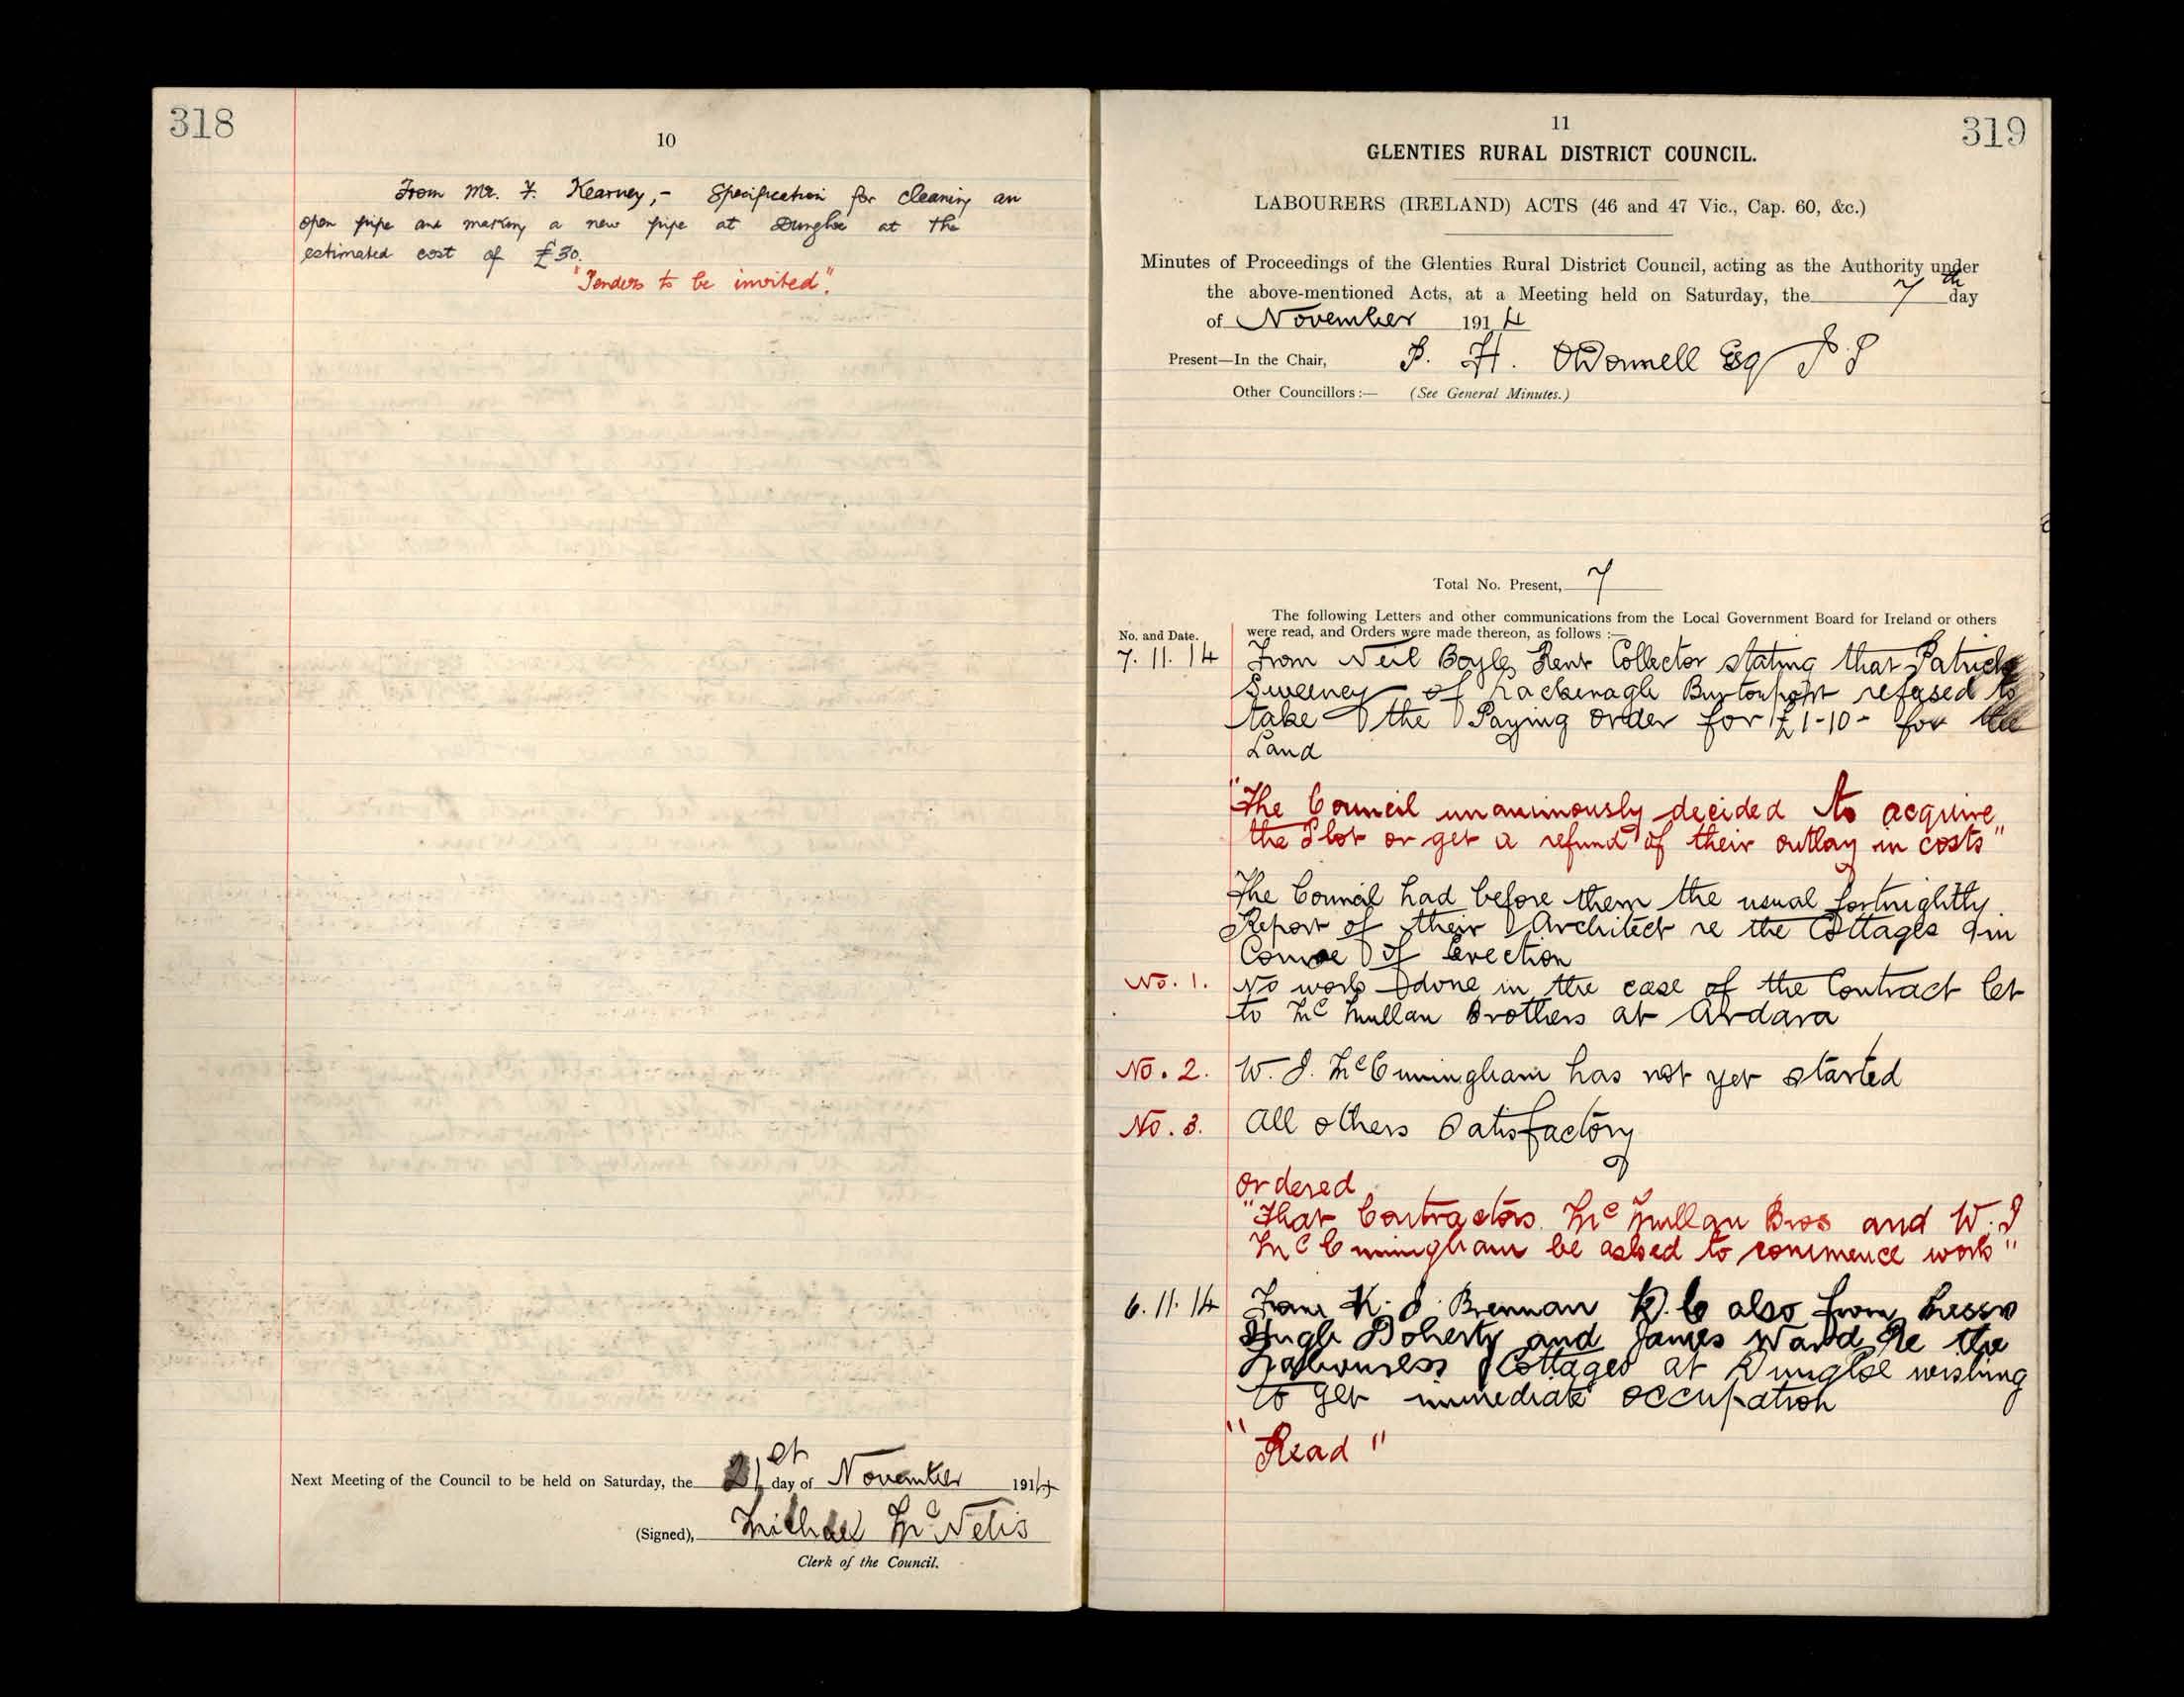 318
10
From Mr. F. Kearney,- Specification for cleaning an
open pipe and making a new pipe at Dungloe at the
estimated cost of £30.
"Tenders to be invited".
Next Meeting of the Council to be held on Saturday, the 21st day of November 1914
(Signed), Michael McNelis
Clerk of the Council.
11
319
GLENTIES RURAL DISTRICT COUNCIL.
LABOURERS (IRELAND) ACTS (46 and 47 Vic., Cap. 60, &c.)
Minutes of Proceedings of the Glenties Rural District Council, acting as the Authority under
the above-mentioned Acts, at a Meeting held on Saturday, the 7th day
of November 1914
Present—In the Chair, P. H. O'Donnell Esq J P
Other Councillors :— (See General Minutes.)
Total No. Present, 7
The following Letters and other communications from the Local Government Board for Ireland or others
No. and Date. were read, and Orders were made thereon, as follows :—
7. 11. 14 From Neil Boyle Rent Collector stating that Patrick
Sweeney of Lackenagh Burtonport refused to
take the Paying order for £1-10- for the
Land
"The Council unanimously decided to acquire
the Plot or get a refund of their outlay in costs"
The Council had before them the usual fortnightly
Report of their Architect re the Cottages in
Course of Erection
No. 1. No work done in the case of the Contract let
to McMullan Brothers at Ardara
No. 2. W. J. McCunningham has not yet started
No. 3. All others Satisfactory
ordered
"That Contractors McMullan Bros and W. J
McCunningham be asked to commence work"
6. 11. 14 From K. J. Brennan R. C also from Messrs
Hugh Doherty and James Ward Re the
Labourers Cottages at Dungloe wishing
to get immediate occupation
"Read"